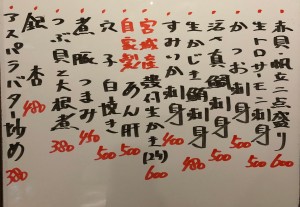 赤貝・帆立二点盛り 600
生トロサーモン刺身 500
かつお刺身 500
活〆真鯛刺身
生かじき鮪刺身 480
すみいか刺身 400
宮城産 殻付生かき(2ケ) 600
自家製 あん肝 500
穴子白焼き 500
煮豚つまみ 450
つぶ貝と大根煮 380
銀杏 480
アスパラバター炒め 380